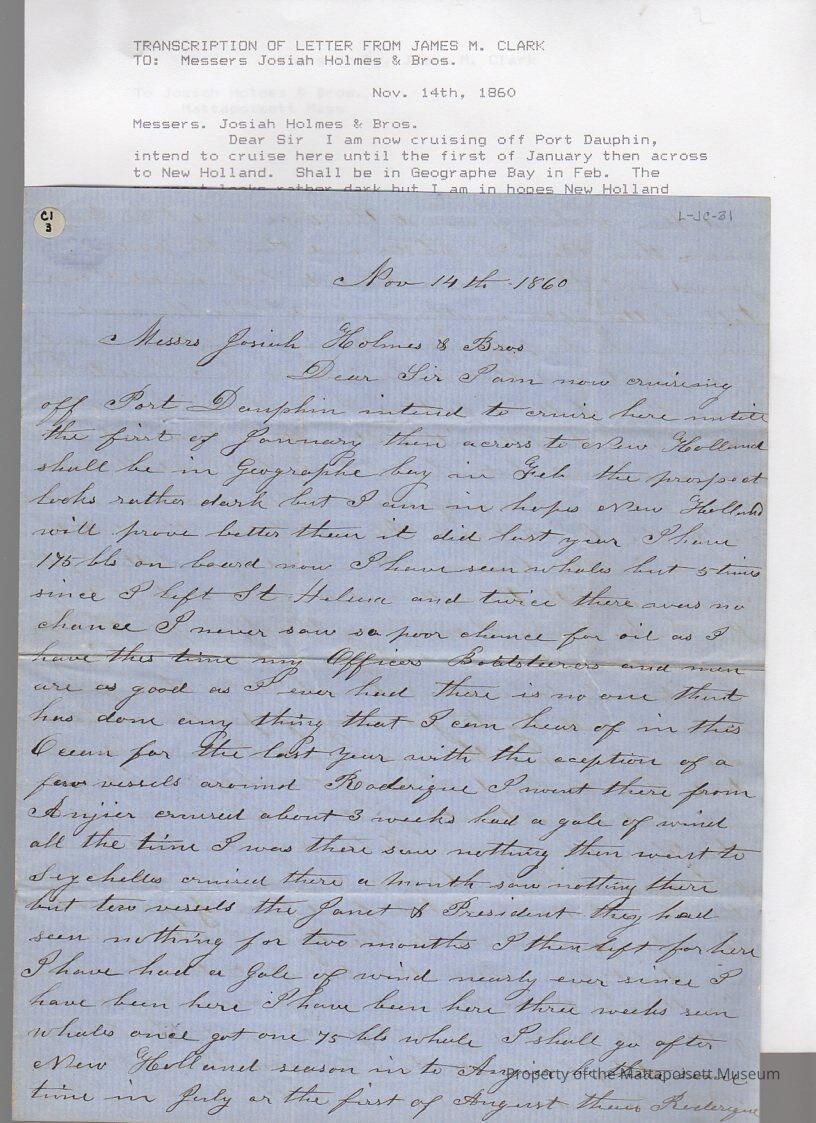 TRANSCRIPTION OF LETTER FROM JAMES M. CLARK
TO: Messers Josiah Holmes & Bros.
Nov. 14th, 1860
Messers. Josiah Holmes & Bros.
Dear Sir I am now cruising off Port Dauphin,
intend to cruise here until the first of January then across
to New Holland. Shall be in Geographe Bay in Feb. The
looks rather dark but I am in hopes New Holland
C1
3
L-JC-31
Nov 14th 1860
Messrs Josiah Holmes & Bros
Dear Sir I am now cruising
off Port Dauphin intend to cruise here untill
the first of January then across to New Holland
shall be in Geographe bay in Feb the prospect
looks rather dark but I am in hopes New Holland
will prove better than it did last year I have
175 bls on board now I have seen whales but 5 times
since I left St Helena and twice there was no
chance I never saw so poor chance for oil as I
have this time my Officers Boatsteerers and men
are as good as I ever had there is no one that
has done any thing that I can hear of in this
Ocean for the last year with the aception of a
few vessels around Roderique I went there from
Anjier cruised about 3 weeks had a gale of wind
all the time I was there saw nothing then went to
Seychelles cruised there a month saw nothing there
but two vessels the Janet & President they had
seen nothing for two months I then left for here
I have had a Gale of wind nearly ever since I
have been here I have been here three weeks seen
whales once got one 75 bls whale I shall go after
New Holland season in to Anjier
time in July or the first of August then Roderique
Property of the Mattapoisett Museum